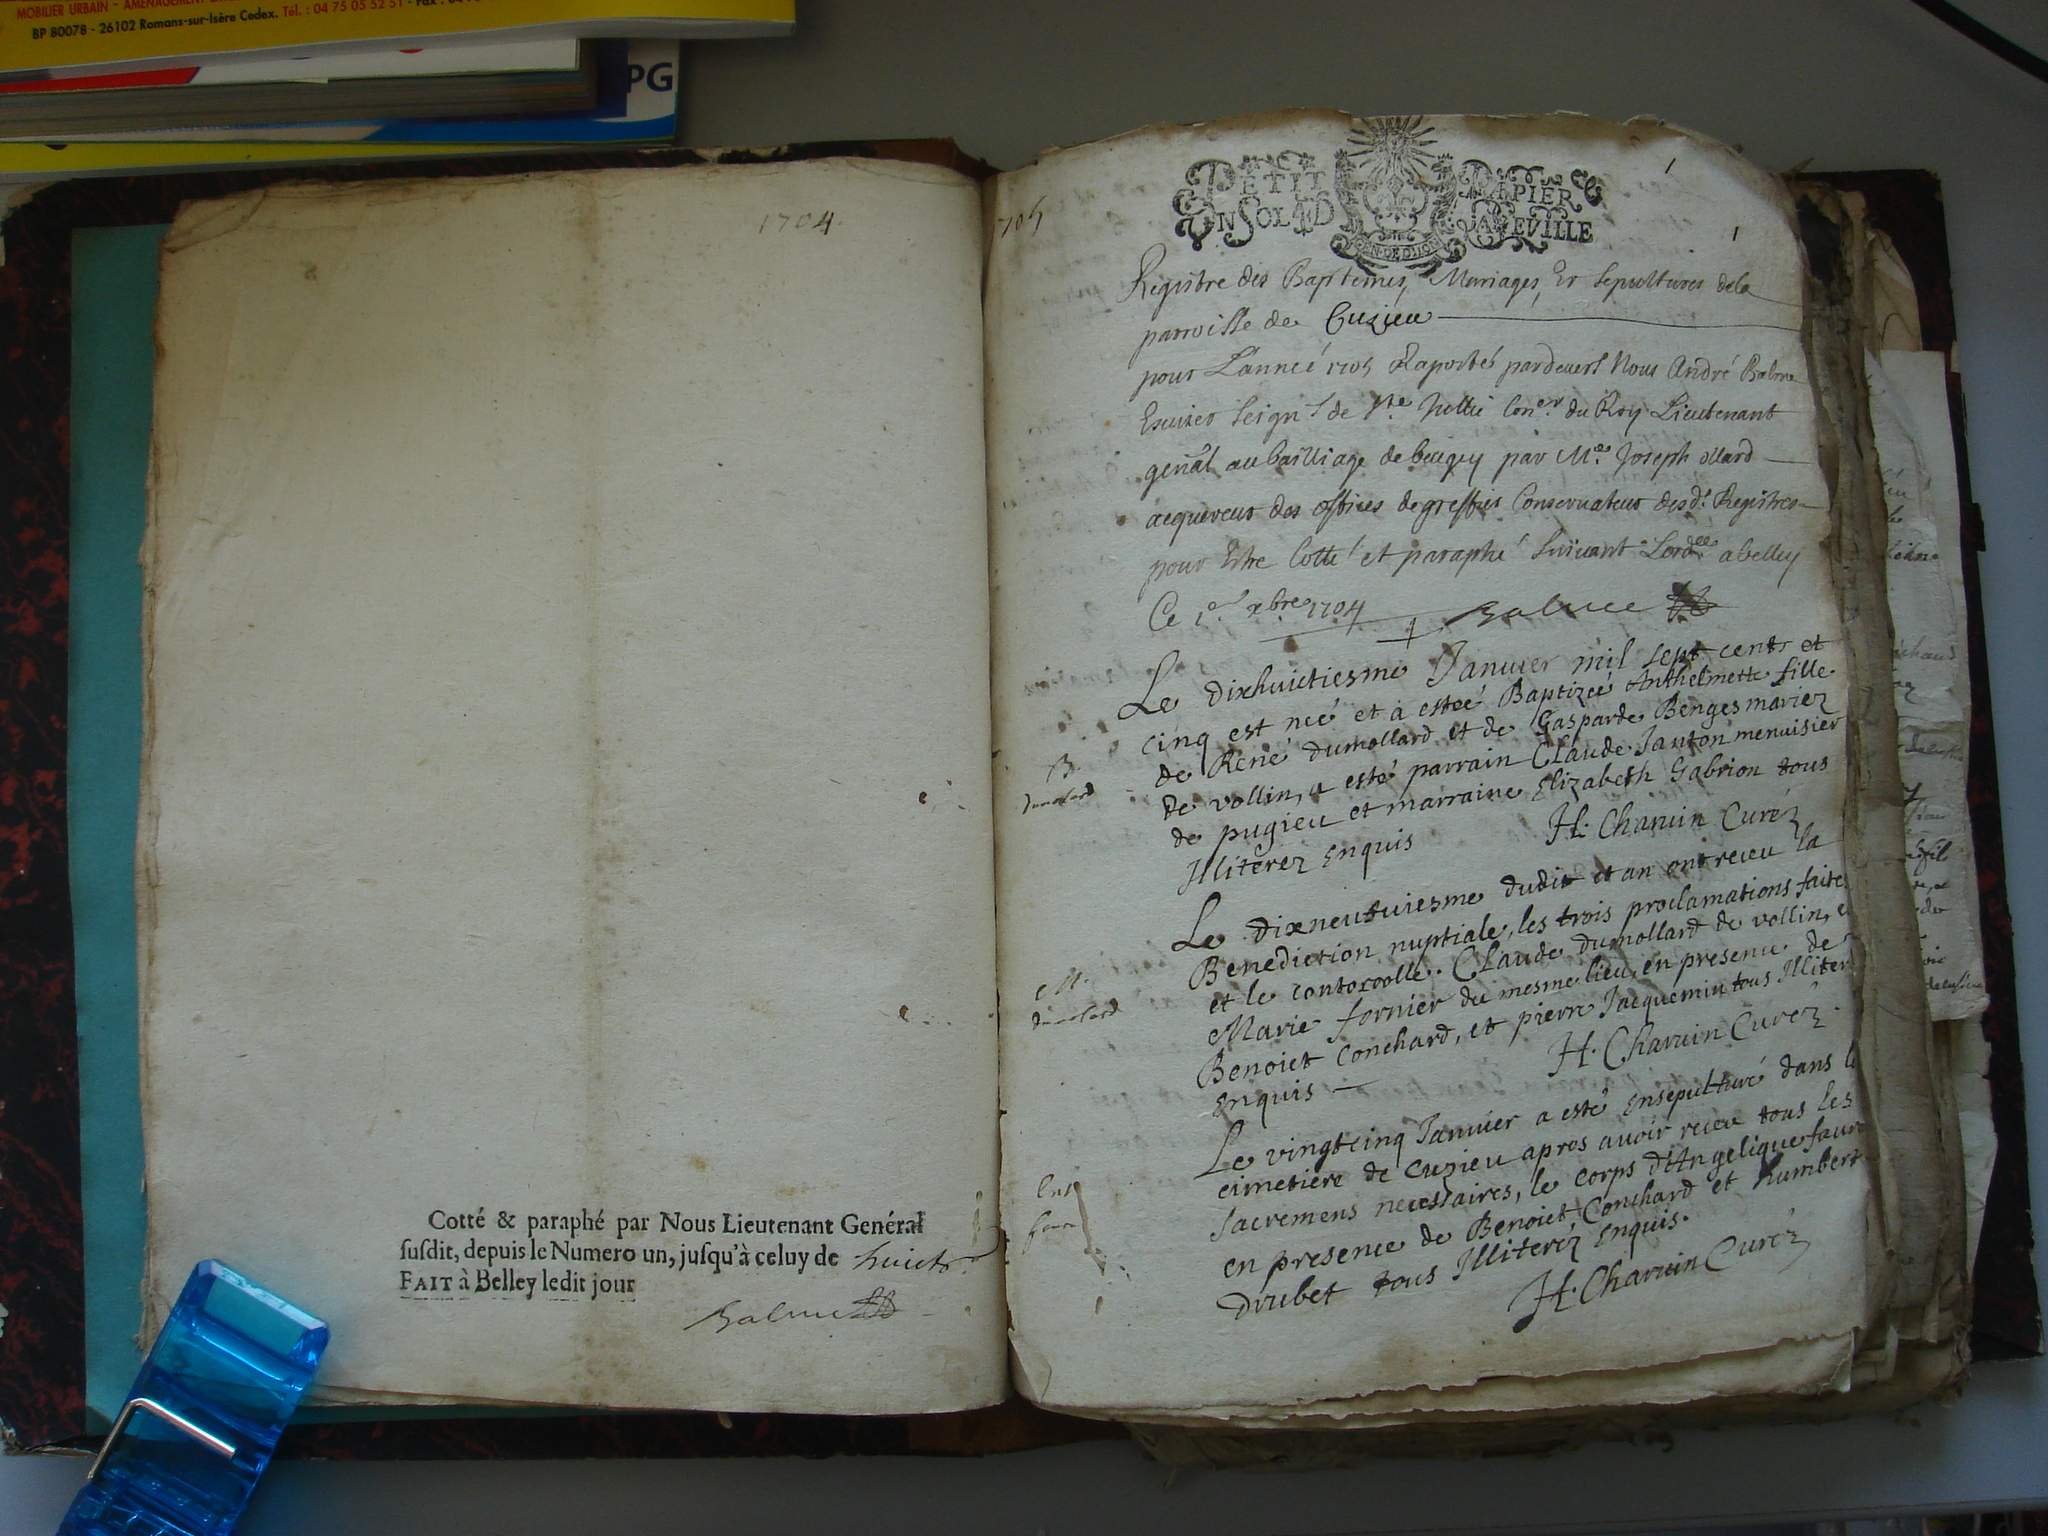 MOBILIER URBAIN - AMÉNAGEMENT
BP 80078 - 26102 Romans-sur-Isère Cedex. Tél. : 04 75 05 52 51 - Fax : 04
PG
1704.
Cotté & paraphé par Nous Lieutenant Genéral
susdit, depuis le Numero un, jusqu'à celuy de huict
FAIT à Belley ledit jour
Balme
705
1
PETIT PAPIER
UN SOL IIII D LA FEUILLE
GEN. DE DIJON
1
Registre des Baptemes, Mariages, Et Sepultures dela
parroisse de Cuzieu
pour L'anneé 1705 Raporté pardevers Nous André Balme
Escuier Seignr de Ste Jullie Coner. du Roy Lieutenant
genãl au bailliage de beugey par Me. Joseph ollard
acquereur des offices de greffier Conservateur desd. Registres
pour Estre Cotté et paraphé suivant Lordce abelley
Ce 1er xbre 1704 Balme
Le dixhuictiesme Januier mil sept cents et
cinq est neé et à esteé Baptizeé Anthelmette fille
de René dumollard et de Gasparde Benges mariez
de vollin, a esté parrain Claude Janton menuisier
de pugieu et marraine Elizabeth Gabrion tous
Illiterez Enquis H. Charuin Curéz
B.
dumolard
Le dixneufuiesme dudit et an ont receu la
Benediction nuptiale, les trois proclamations faites
et le controolle. Claude dumollard de vollin, e
Marie fornier du mesme lieu, en presence de
Benoiet Conchard, et pierre Jacquemin tous Illiter
Enquis H. Charuin Curéz.
M.
dumolard
Le vingtcinq Januier a esté Ensepulturé dans l
cimetiere de Cuzieu apres auoir receu tous les
sacremens necessaires, le corps d'Angelique faure
en presence de Benoiet Conchard et humbert
Drubet tous Illiteréz Enquis.
H. Charuin Curéz
Ent
faure